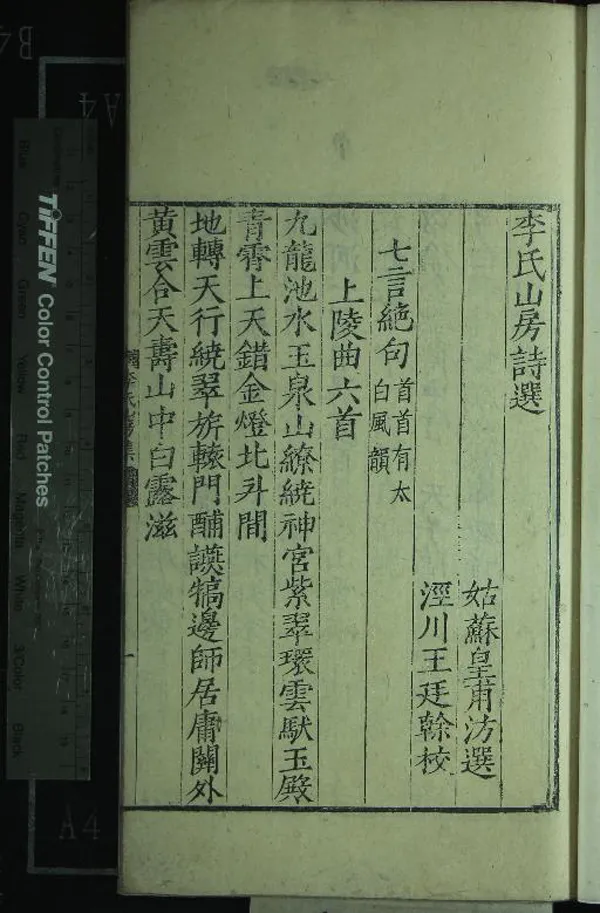 李氏山房詩選
姑蘇皇甫汸選
涇川王廷幹校
七言絶句
首首有太
白風韻
上陵曲六首
九龍池水玉泉山繚繞神宮紫翠環雲馱玉殿
青霄上天錯金燈北斗間
地轉天行繞翠旂轅門酺讌犒邊師居庸關外
黃雲合天壽山中白露滋
李氏
一
TIFFEN Color Control Patches
Blue
Cyan
Green
Yellow
Red
Magenta
White
3/Color
Black
A4
A4
B4